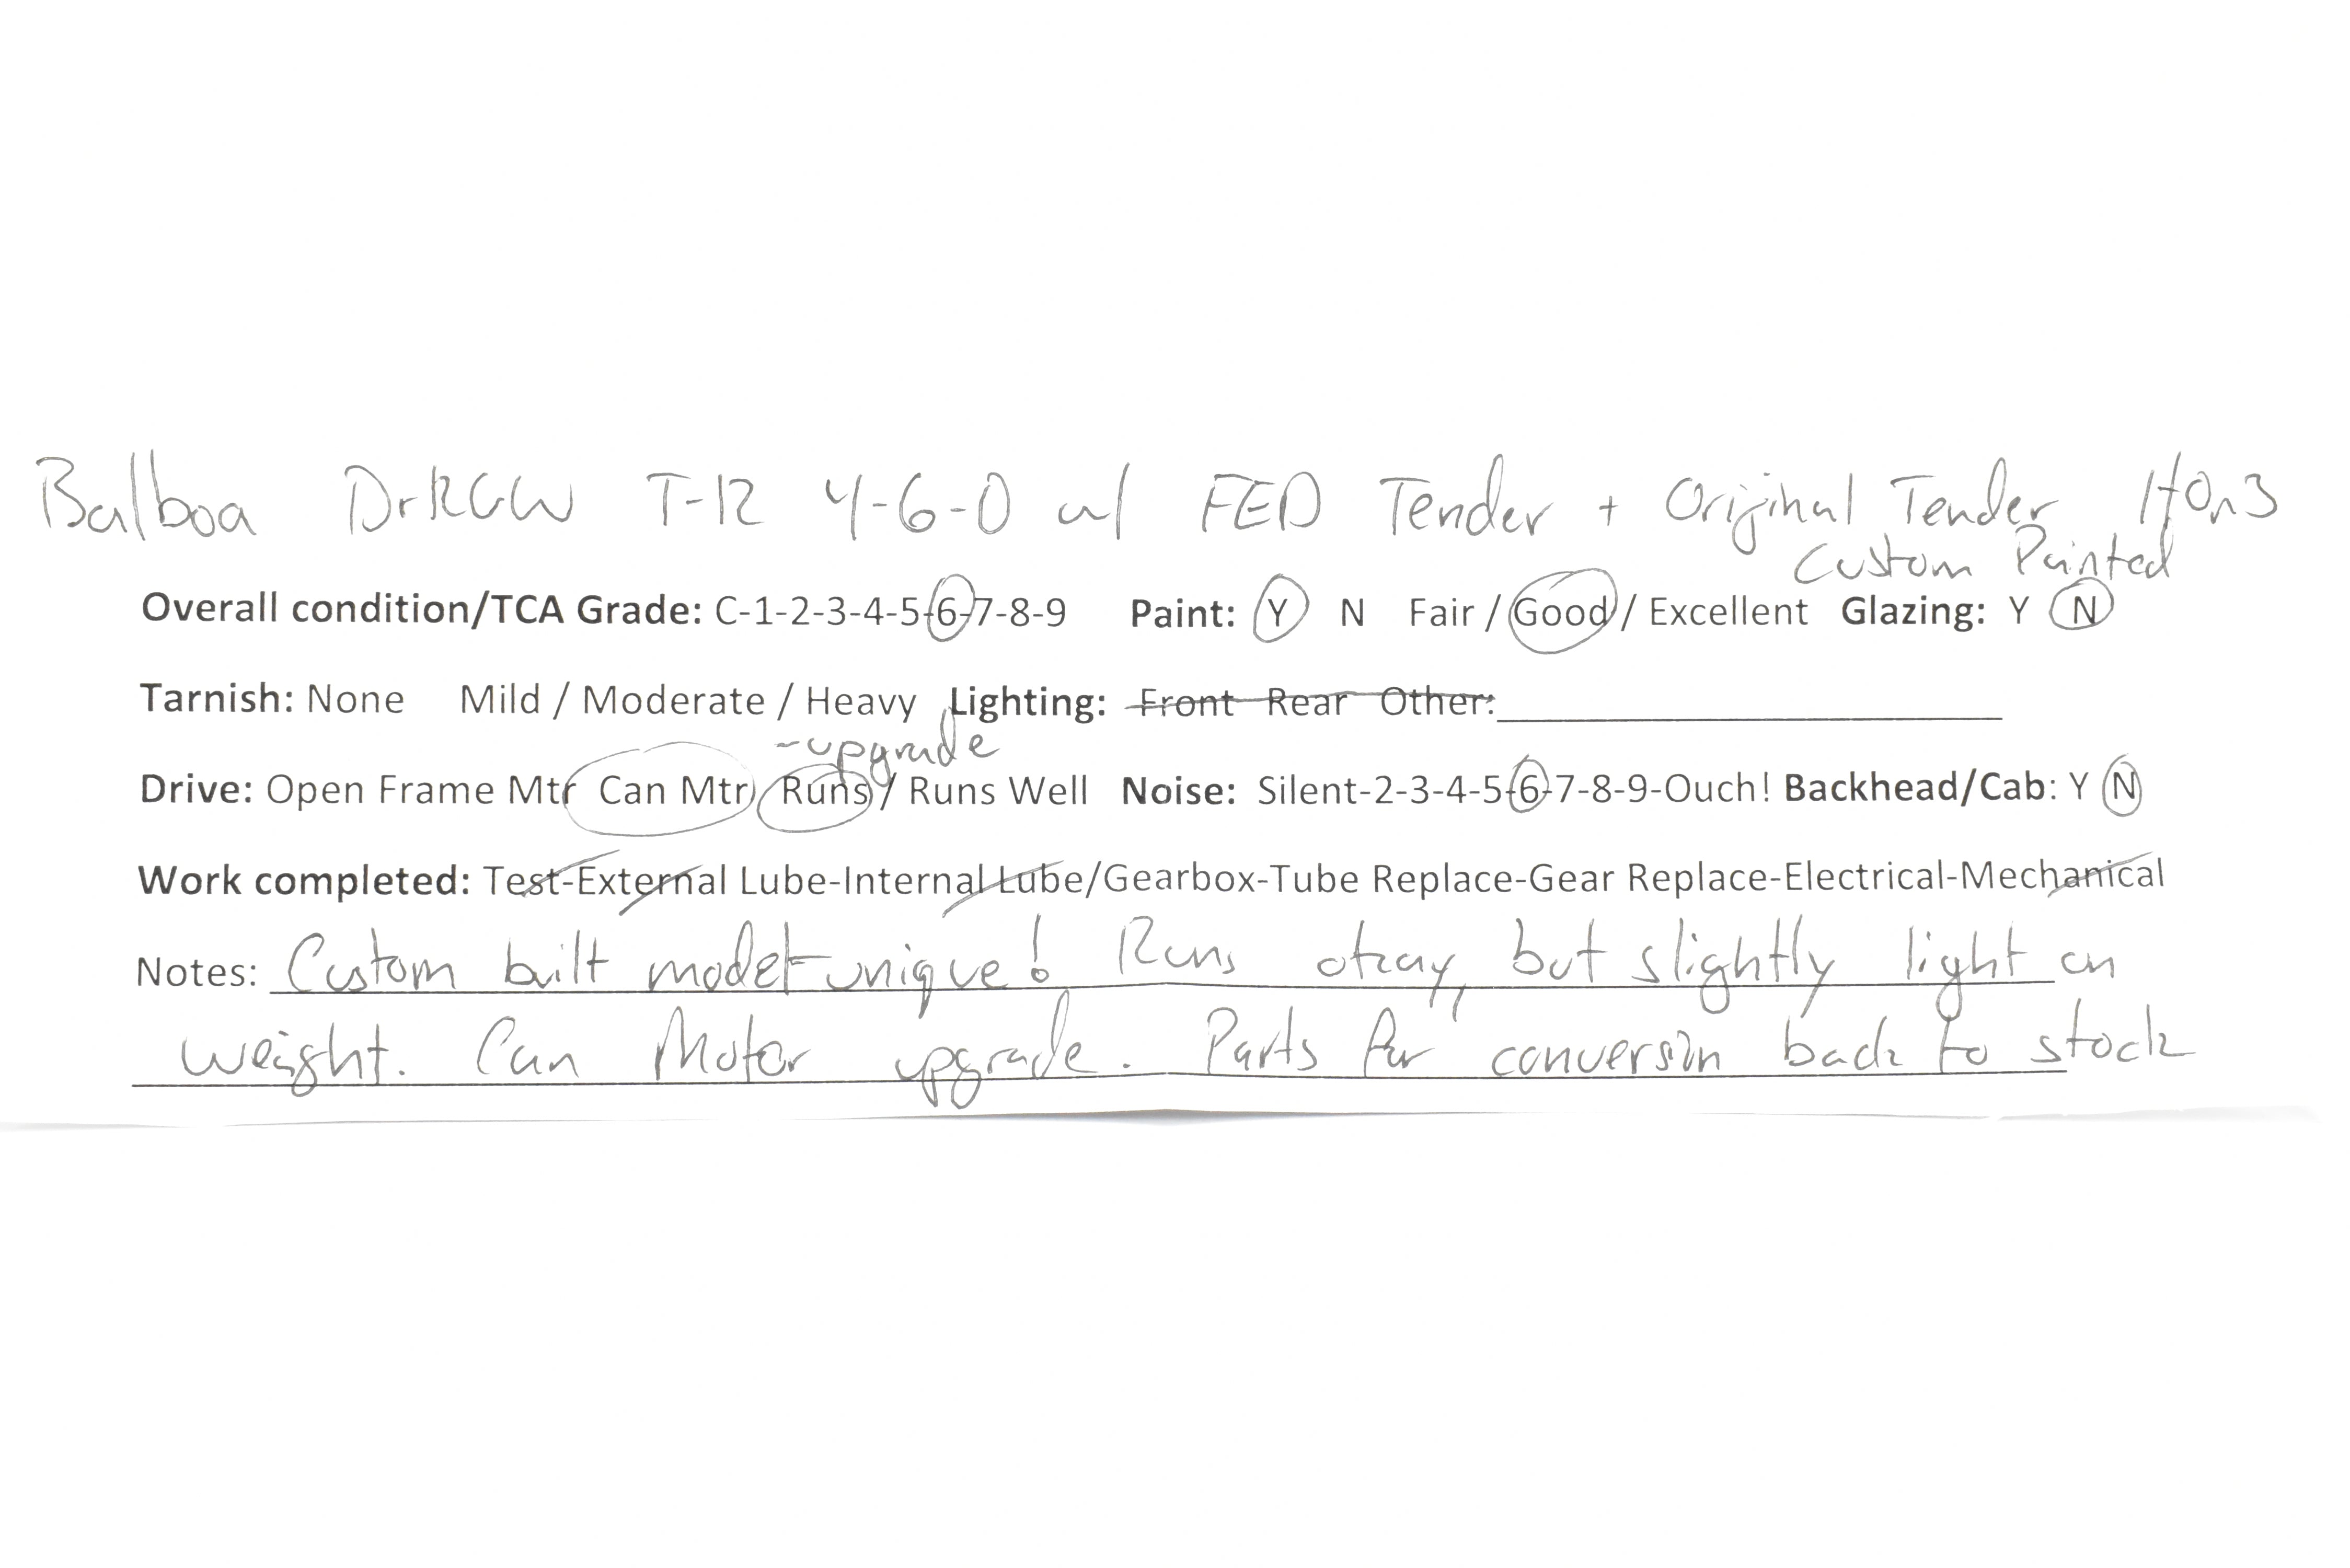 Balboa D+RGW T-12 4-6-0 w/ FED Tender + Original Tender HOn3
Custom Painted
Overall condition/TCA Grade: C-1-2-3-4-5-6-7-8-9 Paint: Y N Fair / Good / Excellent Glazing: Y N
Tarnish: None Mild / Moderate / Heavy Lighting: Front Rear Other:
-upgrade
Drive: Open Frame Mtr Can Mtr Runs / Runs Well Noise: Silent-2-3-4-5-6-7-8-9-Ouch! Backhead/Cab: Y N
Work completed: Test-External Lube-Internal Lube/Gearbox-Tube Replace-Gear Replace-Electrical-Mechanical
Notes: Custom built model-unique! Runs okay, but slightly light on
weight. Can Motor upgrade. Parts for conversion back to stock